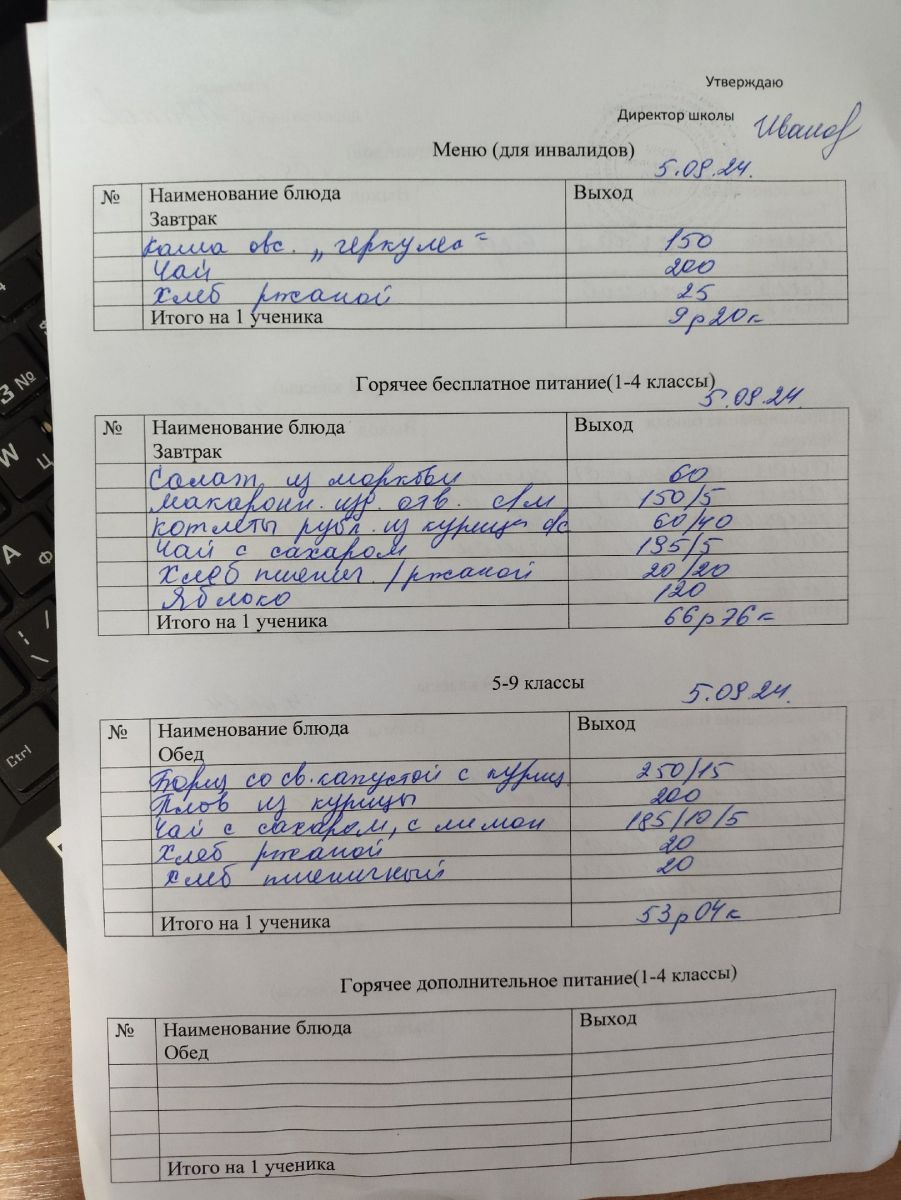 Утверждаю
Директор школы Иванов
Меню (для инвалидов)
5.09.24.
№ Наименование блюда Выход
Завтрак
Каша овс. „геркулес" 150
Чай 200
Хлеб ржаной 25
Итого на 1 ученика 9р20к
Горячее бесплатное питание(1-4 классы)
5.09.24
№ Наименование блюда Выход
Завтрак
Салат из моркови 60
Макаронн. изд. отв. с/м 150/5
Котлеты рубл. из курицы 60/40
Чай с сахаром 195/5
Хлеб пшенич. /ржаной 20/20
Яблоко 120
Итого на 1 ученика 66р76к
5-9 классы
5.09.24.
№ Наименование блюда Выход
Обед
Борщ со св. капустой с куриц 250/15
Плов из курицы 200
Чай с сахаром, с лимон 185/10/5
Хлеб ржаной 20
Хлеб пшеничный 20
Итого на 1 ученика 53р04к
Горячее дополнительное питание(1-4 классы)
№ Наименование блюда Выход
Обед
Итого на 1 ученика